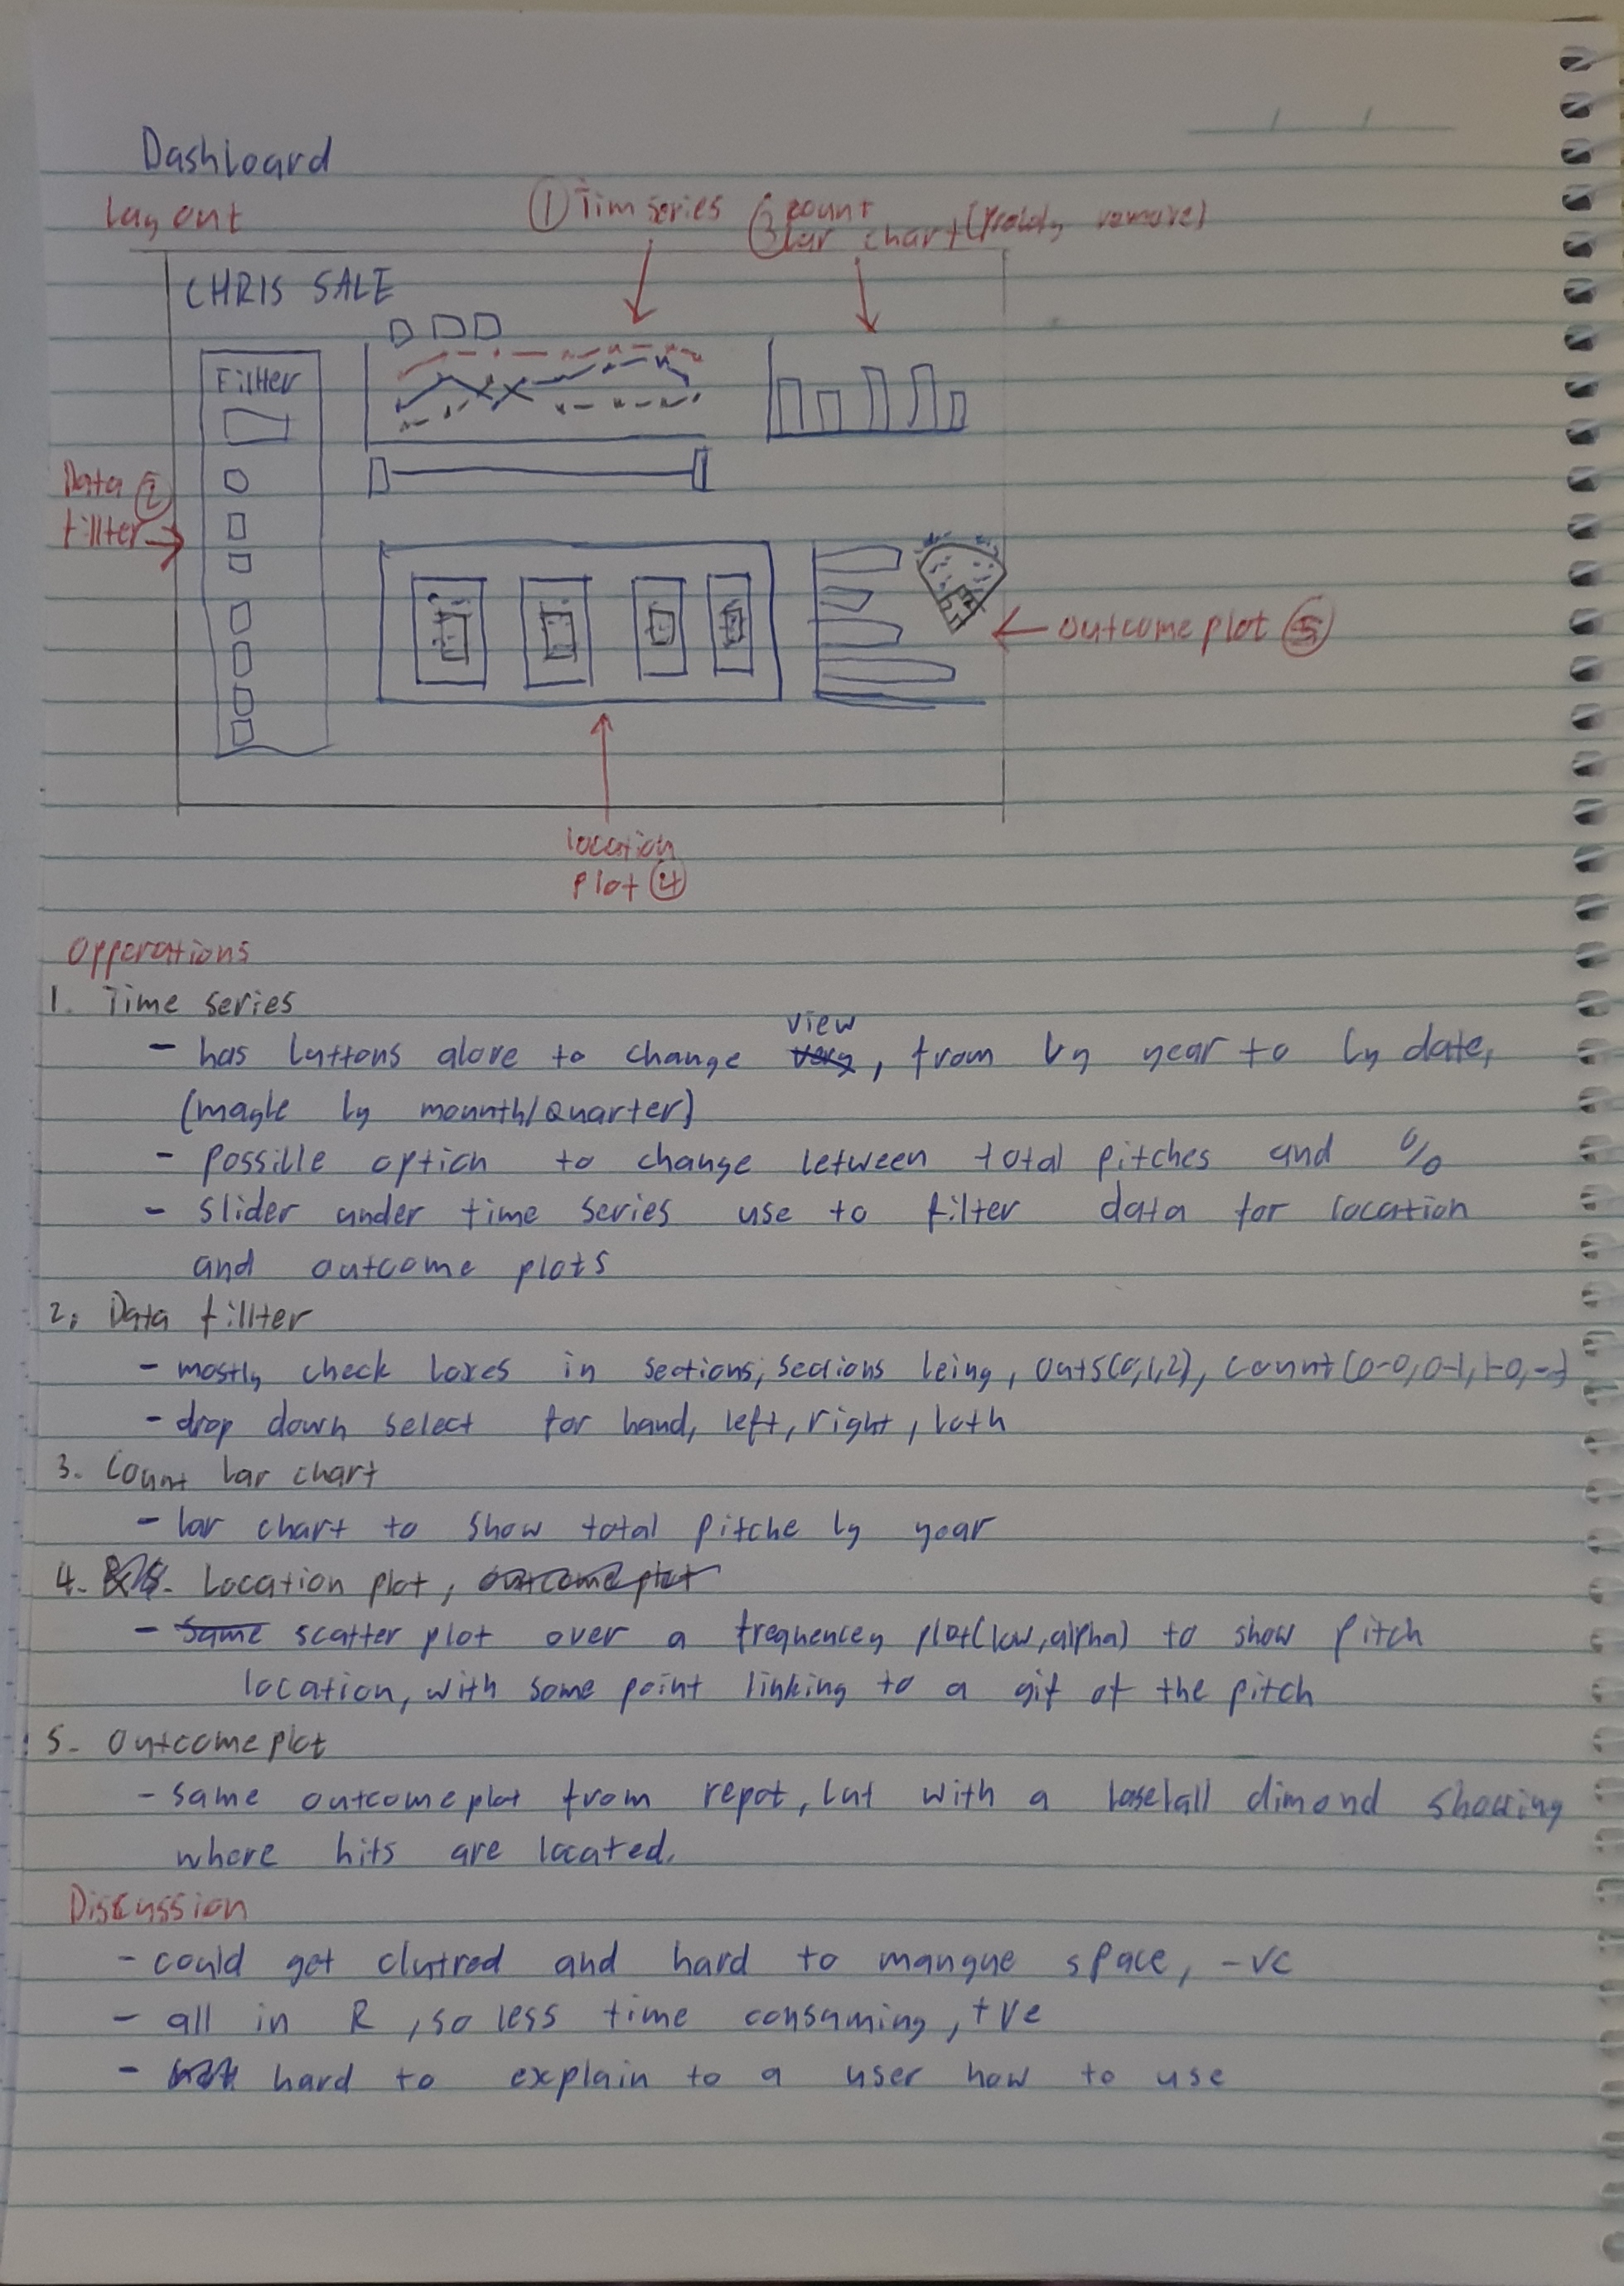 Dashboard
layout
① Tim series
③ count
bar chart (probably remove)
CHRIS SALE
Fillter
Data ②
fillter
outcome plot ⑤
location
plot ④
Opperations
1. Time series
view
- has buttons above to change very, from by year to by date,
(maybe by mounth/Quarter)
- possible option to change between total pitches and %
- slider under time series use to filter data for location
and outcome plots
2. Data fillter
- mostly check boxes in sections, sections being, outs(0,1,2), count (0-0, 0-1, 1-0, --)
- drop down select for hand, left, right, both
3. Count bar chart
- bar chart to show total pitche by year
4. Location plot, outcome plot
- same scatter plot over a frequencey plot(low, alpha) to show pitch
location, with some point linking to a gif of the pitch
5- Outcome plot
- same outcome plot from repot, but with a baseball dimond showing
where hits are located.
Discussion
- could get clutred and hard to mangue space, -ve
- all in R, so less time consuming, +ve
- hard to explain to a user how to use